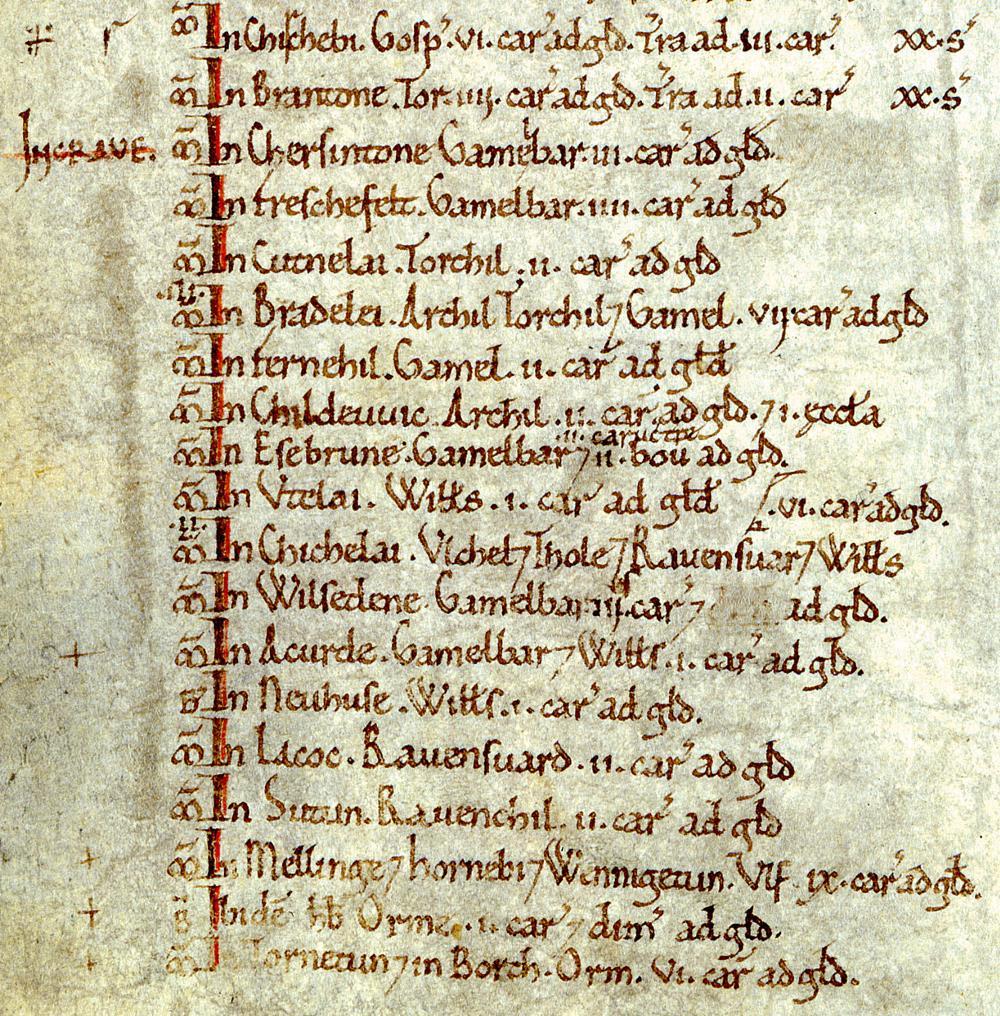 m̃ In Chischebi. Gosp̄. vi. car' ad gld̄. Tr̄a ad. iii. car'. xx. s'
m̃ In Brantone. Tor. iiij. car' ad gld̄. Tr̄a ad. ii. car' xx. s'
IN CRAVE. m̃ In Chersintone Gamelbar. iii. car' ad gld̄.
m̃ In treschefelt. Gamelbar. iiii. car' ad gld̄
m̃ In Cutnelai. Torchil. ii. car' ad gld̄
.iii. m̃ In Bradelei. Archil Torchil ⁊ Gamel. vij car' ad gld̄
m̃ In ternehil. Gamel. ii. car' ad gld̄
m̃ In Childeuuic. Archil. ii. car' ad gld̄. ⁊ i. ęccła
.ii. carucatę
m̃ In Esebrune. Gamelbar ⁊ ii. bou' ad gld̄.
m̃ In Utelai. Wiłłs. i. car' ad gld̄ .vi. car' ad gld̄.
.iiii. m̃ In Chichelai. Ulchel ⁊ Thole ⁊ Rauensuar ⁊ Wiłłs
m̃ In Wilsedene Gamelbar. iij. car' ⁊ ad gld̄.
m̃ In Acurde. Gamelbar ⁊ Wiłłs. i. car' ad gld̄.
B In Neuhuse. Wiłłs. i. car' ad gld̄.
m̃ In Lacoc. Rauensuard. ii. car' ad gld̄
m̃ In Sutun. Rauenchil. ii. car' ad gld̄
m̃ In Mellinge ⁊ hornebi ⁊ Wennigetun. Ulf ix. car' ad gld̄.
B Ibidē ħb Orme. i. car' ⁊ dim' ad gld̄.
m̃ In Tornetun ⁊ in Borch. Orm. vi. car' ad gld̄.